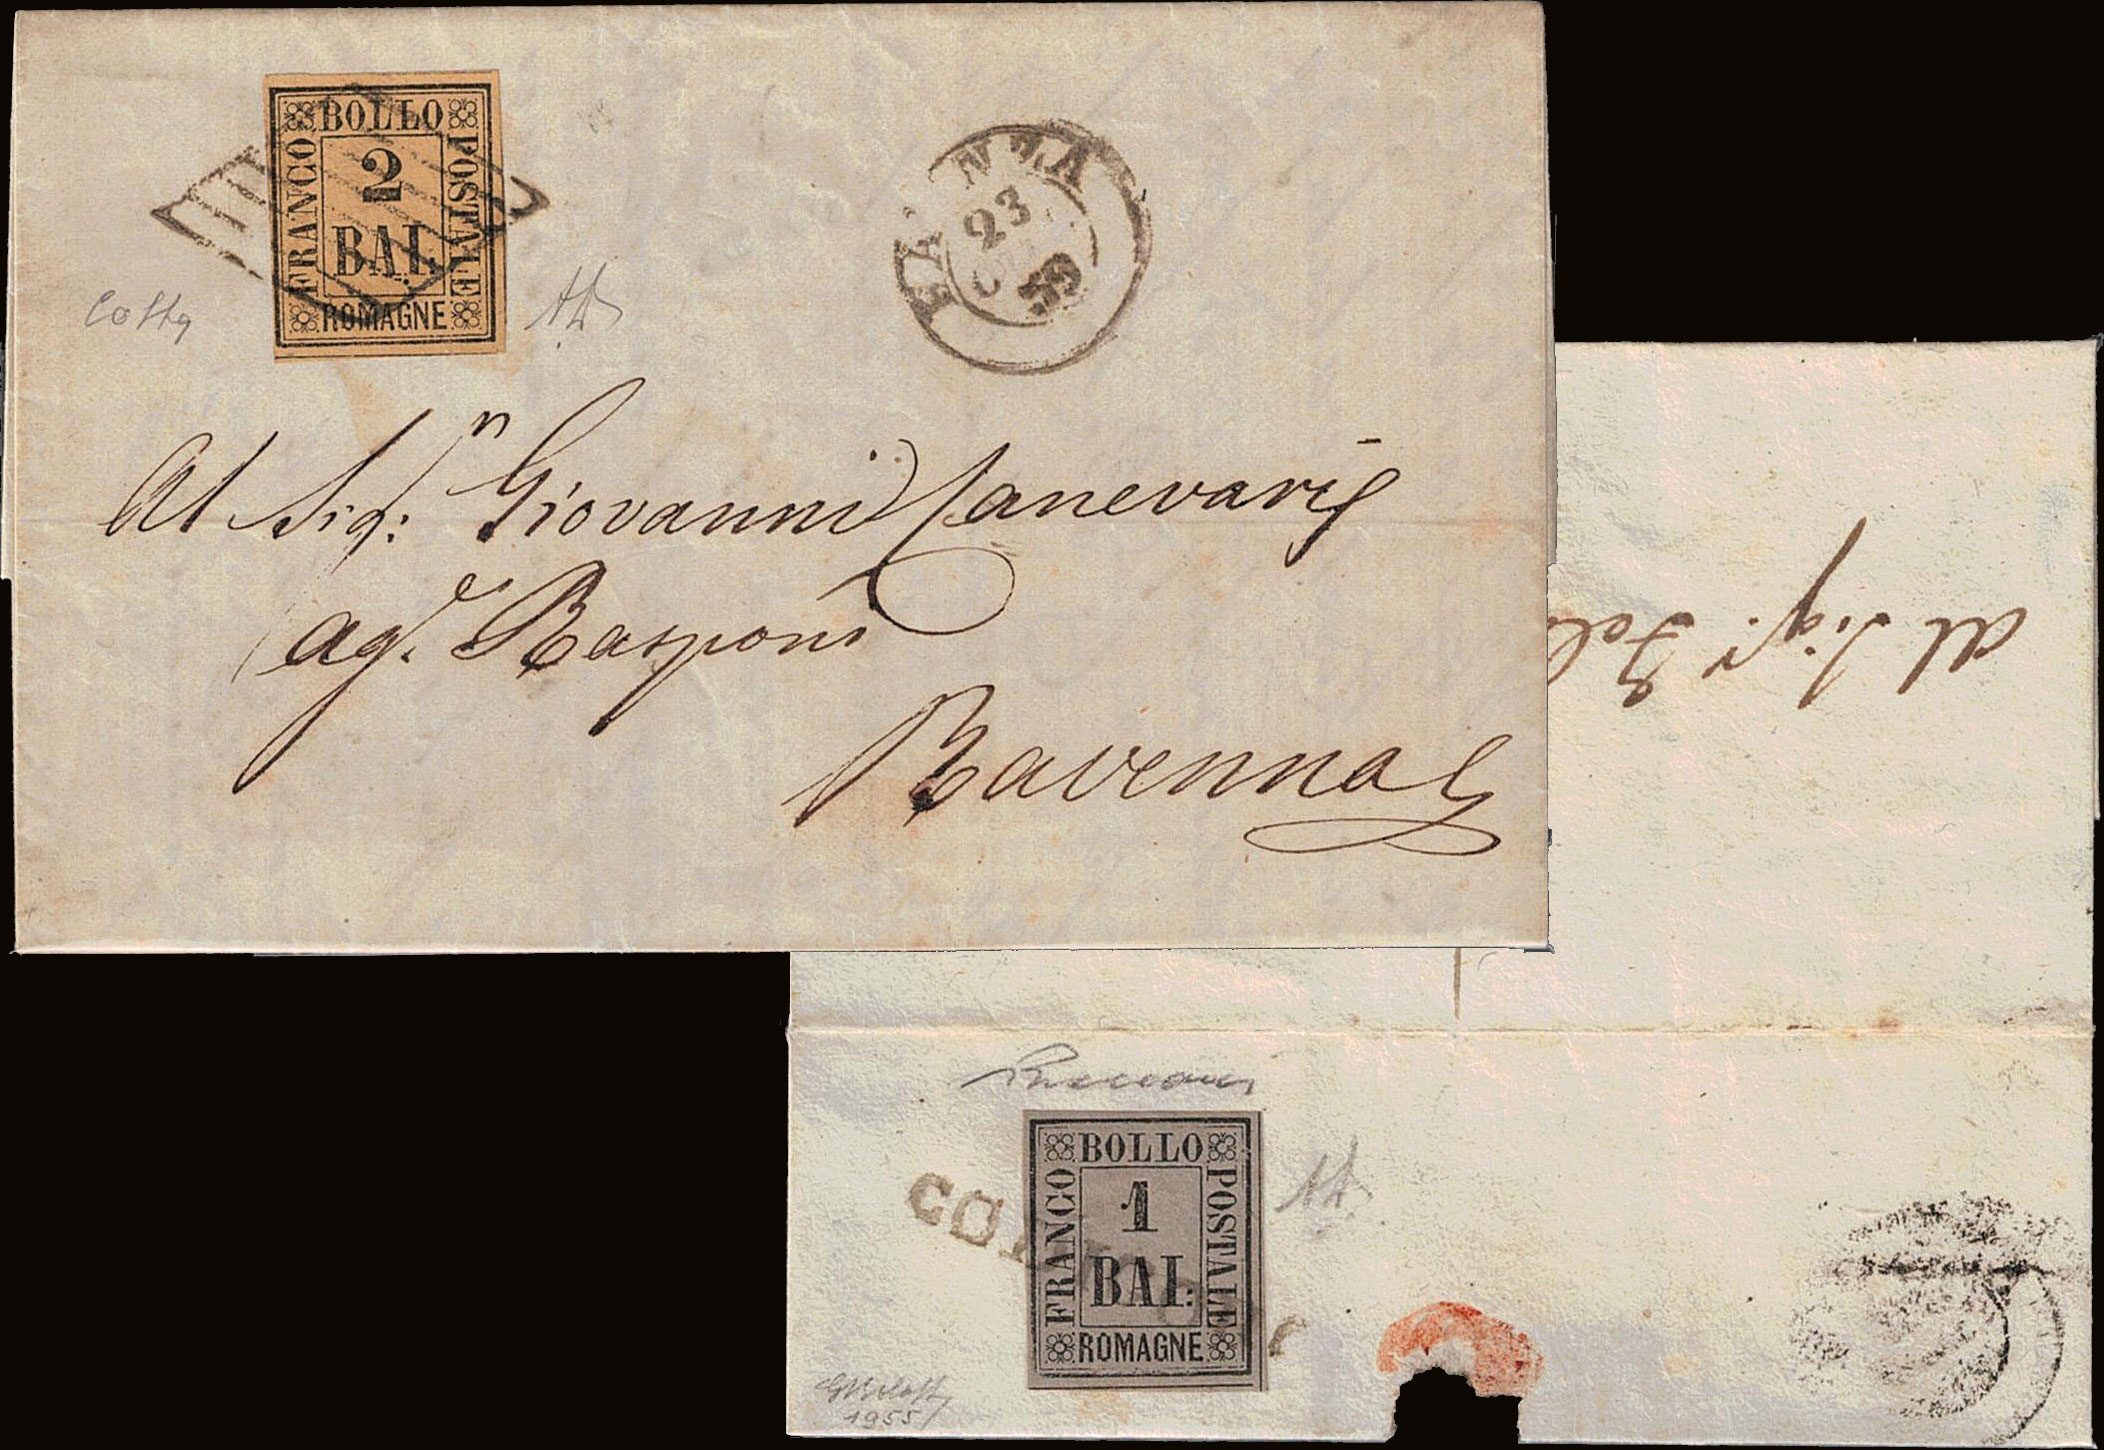 BOLLO
FRANCO
POSTALE
2
BAI.
ROMAGNE
FAENZA
23
59
Costa
Al Sig.n Giovanni Canevari
ag.e Rasponi
Ravenna
Al Sig.r
BOLLO
FRANCO
POSTALE
1
BAI:
ROMAGNE
1955